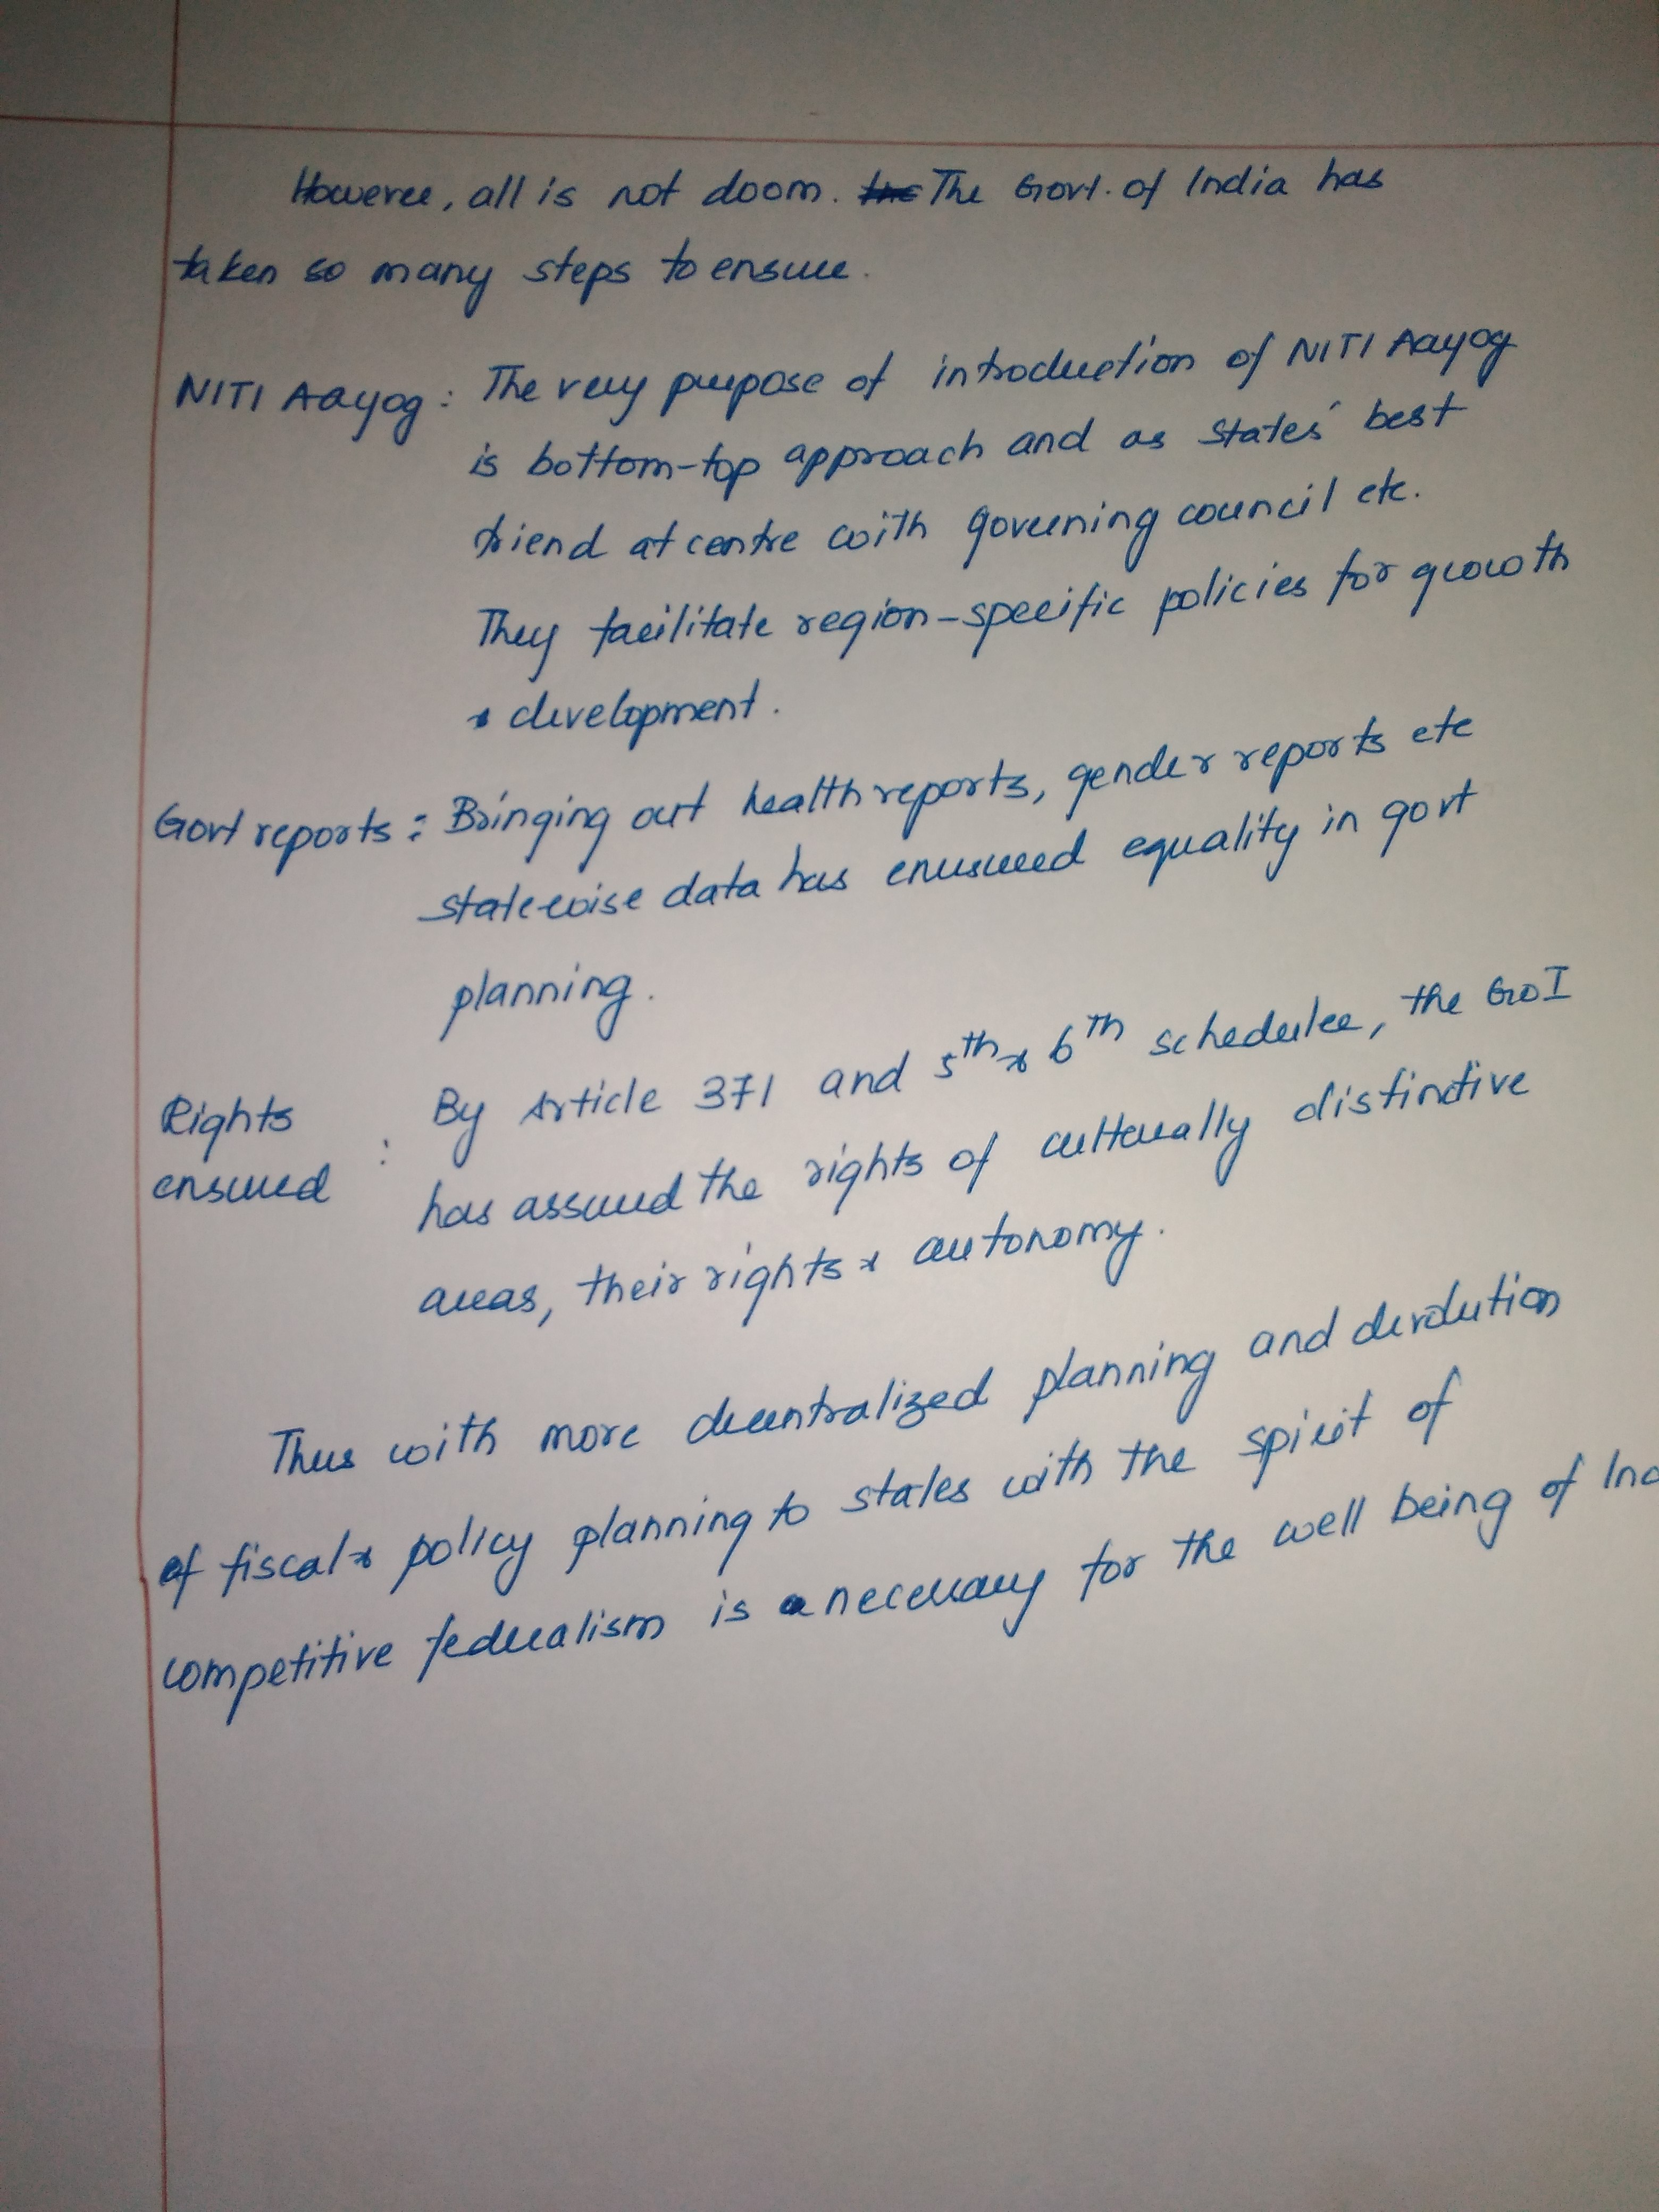 However, all is not doom. the The Govt. of India has
taken so many steps to ensure.
NITI Aayog : The very purpose of introduction of NITI Aayog
is bottom-top approach and as States' best
friend at centre with governing council etc.
They facilitate region-specific policies for growth
& development.
Govt reports : Bringing out health reports, gender reports etc
state-wise data has enusured equality in govt
planning.
Rights ensured : By Article 371 and 5th & 6th schedulee, the GoI
has assured the rights of culturally distinctive
areas, their rights & autonomy.
Thus with more decentralized planning and devolution
of fiscal & policy planning to states with the spirit of
competitive federalism is a necessary for the well being of